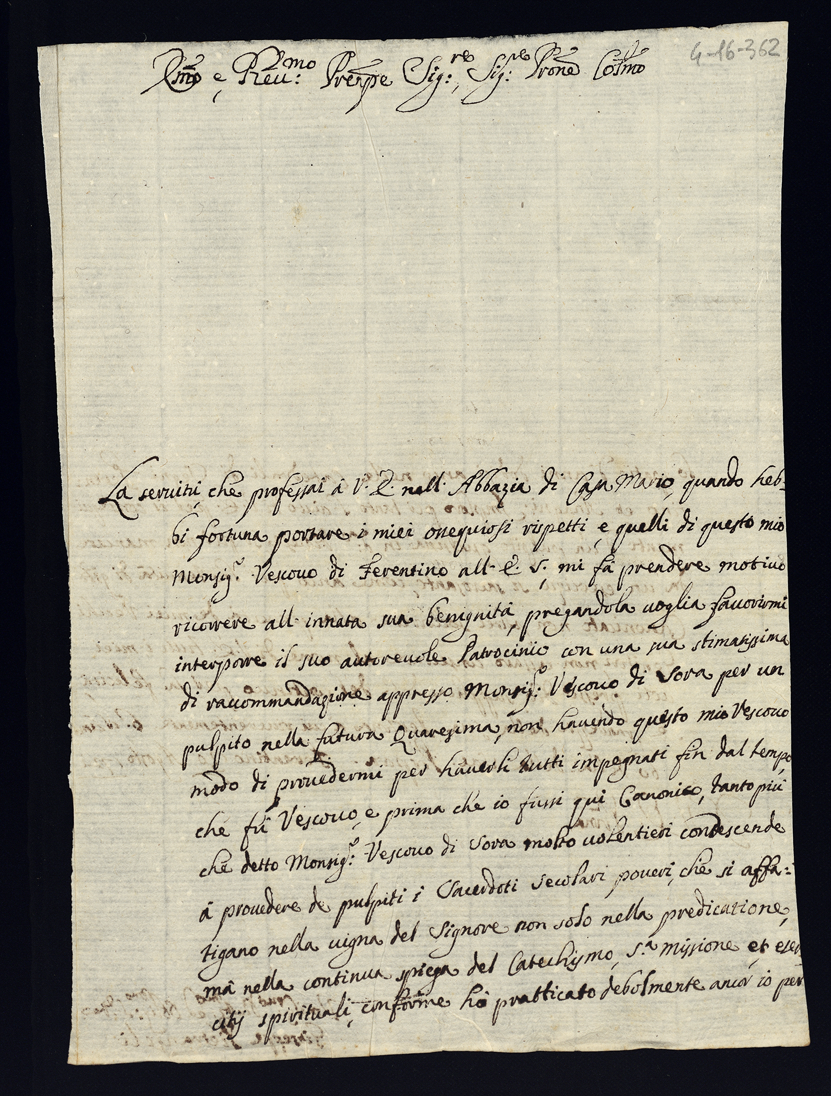 4-16-362
Emo e Reu:mo Prenpe Sig:re, Sig:re Prone Colmo
La seruitù, che professai à V. E. nell' Abbazia di Casa Mario, quando heb-
bi fortuna portare i miei ossequiosi rispetti, e quelli di questo mio
Monsig.r Vescouo di Ferentino all' E. S., mi fà prendere motiuo
ricorrere all' innata sua benignità, pregandola uoglia fauorirmi
interporre il suo autoreuole Patrocinio con una sua stimatissima
di raccommandazione appresso Monsig:r Vescouo di Sora per un
pulpito nella futura Quaresima, non hauendo questo mio Vescouo
modo di prouedermi per hauerli tutti impegnati fin dal tempo,
che fù Vescouo, e prima che io fussi qui Canonico, tanto più
che detto Monsig:r Vescouo di Sora molto uolentieri condescende
à prouedere de pulpiti i Sacerdoti secolari poueri, che si affa:
tigano nella uigna del Signore non solo nella predicatione,
mà nella continua spiega del Catechismo, S.a Missione, et eser-
citij spirituali, conforme hò pratticato debolmente ancor io per